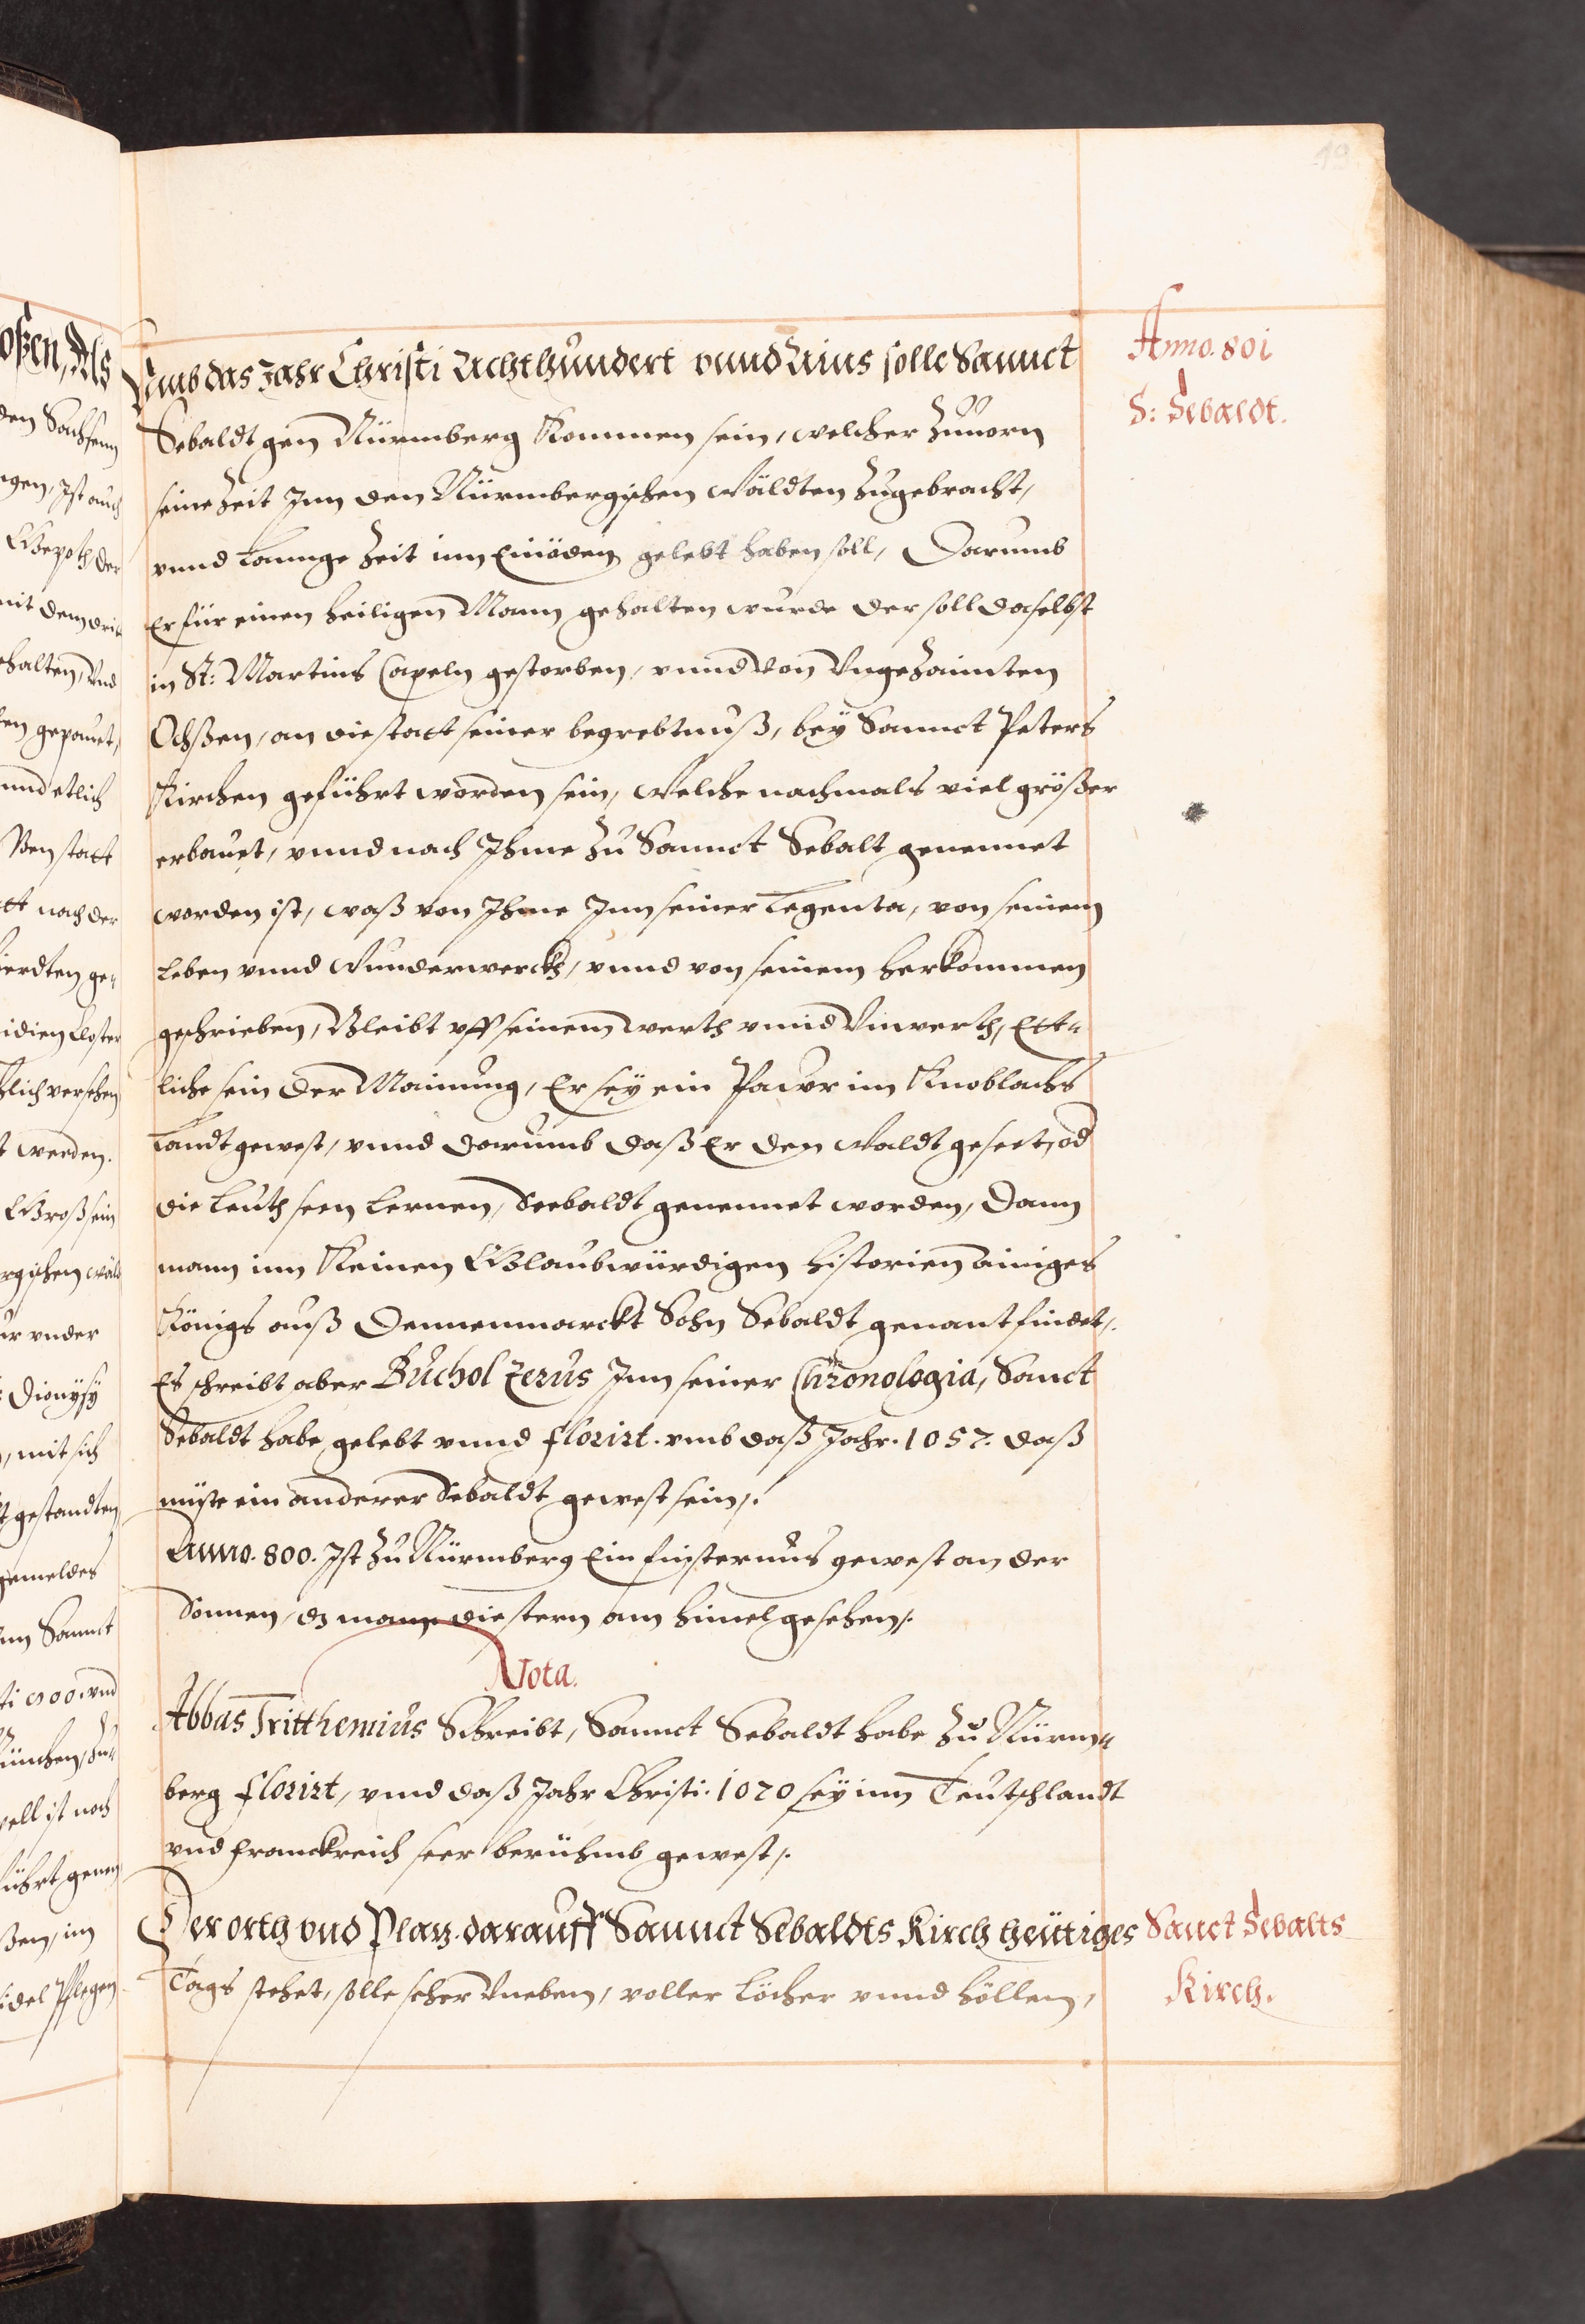 19
Anno. 801
S: Sebaldt.
Vmb das Jahr Christi Achthundert vnnd Ains solle Sannct
Sebaldt gen Nürmberg Kommen sein, welcher Zuuorn
seine Zeit Inn den Nürmbergischen Wäldten Zugebracht,
vnnd Lannge Zeit inn Einöden gelebt haben soll, Darumb
Er für einen Heiligen Mann gehalten wurde der soll daselbst
in St: Martins Capeln gestorben, vnnd von Vngezaimten
Ochßen, an die statt seiner begrebtnuß, bey Sannct Peters
Kirchen geführt worden sein, Welche nachmals viel größer
erbauet, vnnd nach Ihme Zu Sannct Sebalt genennet
worden ist, waß von Ihme Inn seiner Legenta, von seinem
Leben vnnd Wunderwerckh, vnnd von seinem Herkommen
geschrieben, Bleibt vff seinem werth vnnd Vnwerth, Ett-
liche sein der Mainung, Er sey ein Pawr im Knoblachs
Landt gewest, vnnd darumb daß Er den Waldt geseet, od
die Leuth seen Lernen, Seebaldt genennet worden, Dann
mann inn Keinen Glaubwürdigen Historien ainiges
Königs auß Dennenmarckt Sohn Sebaldt genant findet,.
Es schreibt aber Bucholzerus Inn seiner Chronologia, Sanct
Sebaldt habe gelebt vnnd florirt. vmb daß Jahr. 1057. daß
müste ein anderer Sebaldt gewest sein,.
Anno. 800. Ist Zu Nürmberg Ein finsternus gewest an der
Sonnen, dz mann die stern am Himel gesehen,.
Nota.
Abbas Tritthemius Schreibt, Sannct Sebaldt habe Zu Nürm-
berg florirt, vnnd daß Jahr Christi. 1070 sey inn Teutschlandt
vnd Franckreich seer berühmb gewest,.
Der orth vnd Plaz. darauff Sannct Sebaldts Kirch heütiges
Sanct Sebalts
Kirch.
Tags stehet, solle seher Vneben, voller Löcher vnnd Höllen,